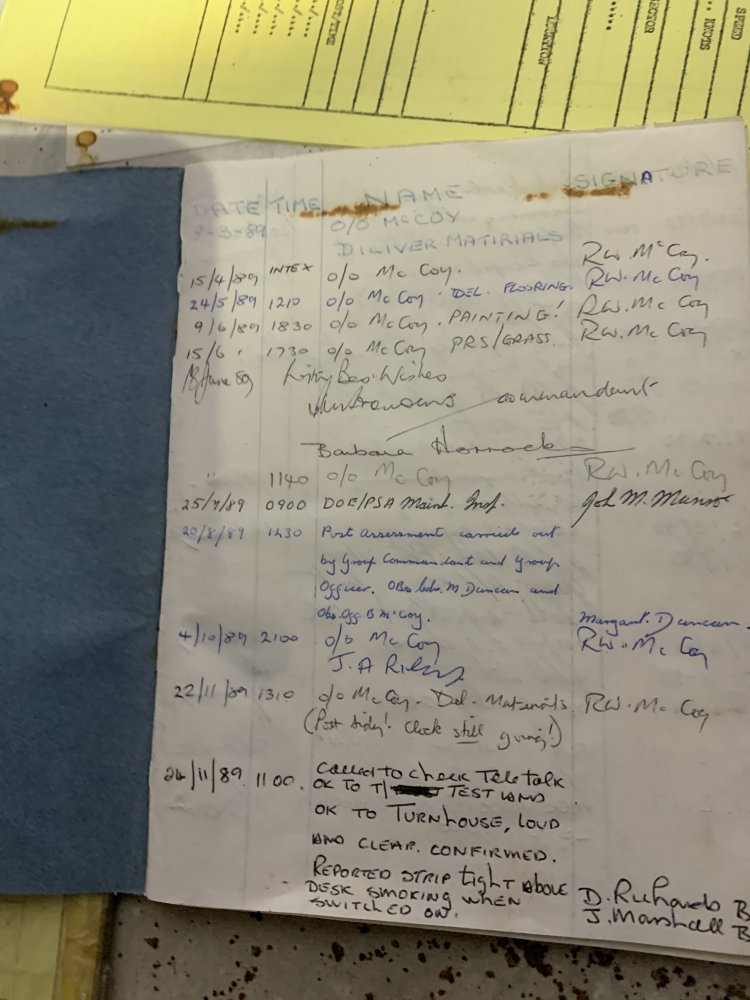 SPEED
KNOTS
SECTOR
LOCATION
POST/TIME
DATE TIME NAME SIGNATURE
8-3-89 O/O McCOY
DILIVER MATIRIALS
15/4/89 INTEX O/O McCoy. RW. McCoy.
24/5/89 1210 O/O McCoy. DEL. FLOORING. RW. McCoy
9/6/89 1830 O/O McCoy. PAINTING! RW. McCoy
15/6 " 1730 O/O McCoy PRS/GRASS. RW. McCoy
18 June 89 With Best Wishes
Commandant
Barbara
" 1140 O/O McCoy RW. McCoy
25/7/89 0900 DOE/PSA Maint. Insp. Joh M. Munroe
20/8/89 1430 Post Assessment carried out
by Group Commandant and Group
Officer. Obs Ldr. M. Duncan and
Obs. Off. B McCoy. Margaret. Duncan.
4/10/89 2100 O/O McCoy RW. McCoy
J. A
22/11/89 1310 O/O McCoy. Del. Materials. RW. McCoy
(Post tidy! Clock still going!)
24/11/89 1100. CALLED TO CHECK TELETALK
OK TO TEST AND
OK TO TURNHOUSE, LOUD
AND CLEAR. CONFIRMED.
REPORTED STRIP LIGHT ABOVE
DESK SMOKING WHEN D. Richards B
SWITCHED ON. J. Marshall B